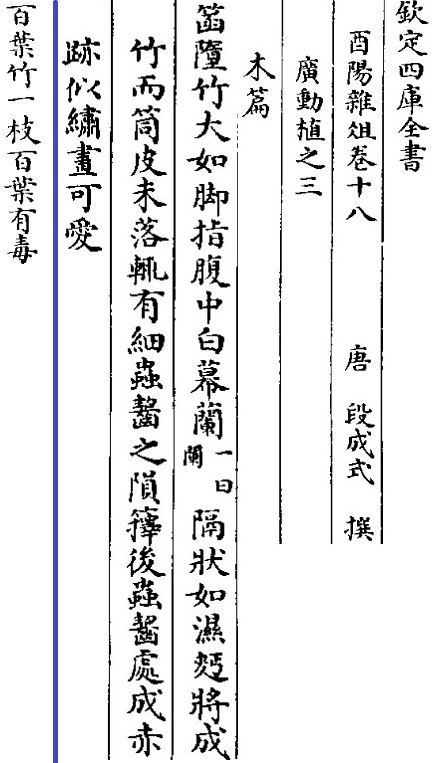 欽定四庫全書
酉陽雜俎卷十八 唐 段成式 撰
廣動植之三
木篇
箘墮竹大如脚指腹中白幕蘭一曰闌隔狀如濕麫將成
竹而筒皮未落輒有細蟲齧之隕籜後蟲齧處成赤
跡似繡畫可愛
百葉竹一枝百葉有毒